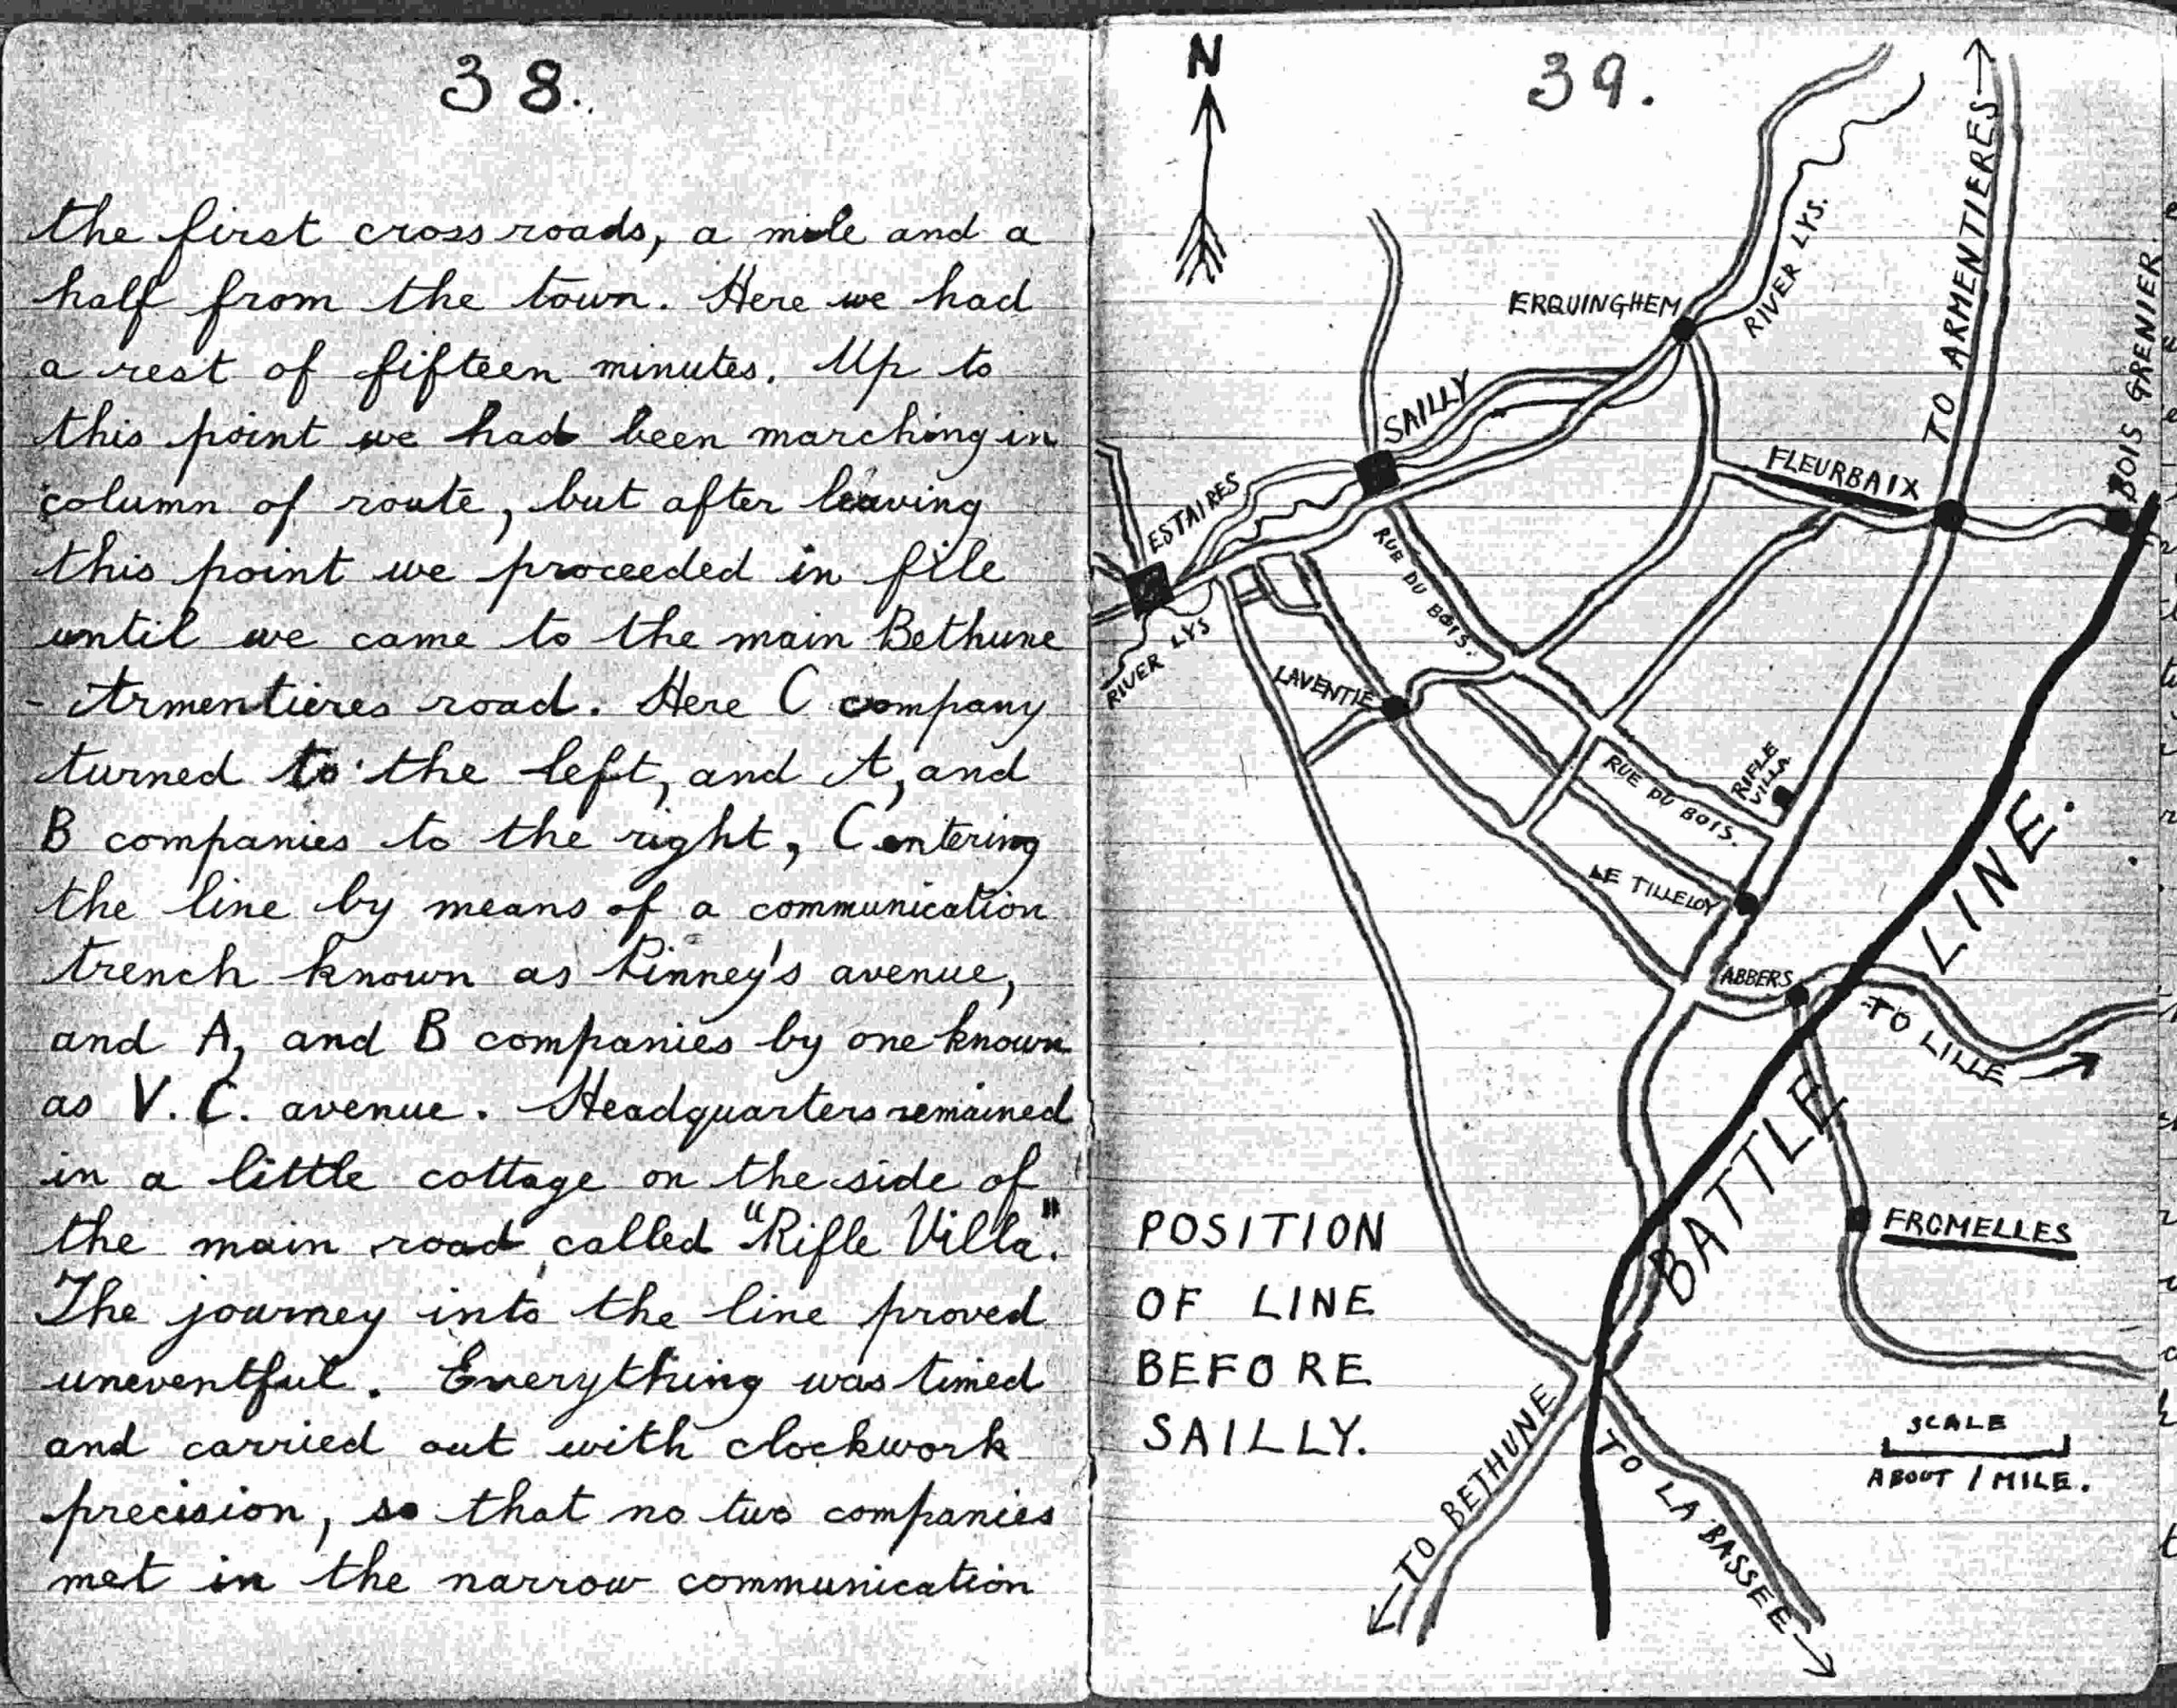 38.
the first cross roads, a mile and a
half from the town. Here we had
a rest of fifteen minutes. Up to
this point we had been marching in
column of route, but after leaving
this point we proceeded in file
until we came to the main Bethune
- Armentieres road. Here C company
turned to the left, and A, and
B companies to the right, C entering
the line by means of a communication
trench known as Pinney's avenue,
and A, and B companies by one known
as V. C. avenue. Headquarters remained
in a little cottage on the side of
the main road, called "Rifle Villa".
The journey into the line proved
uneventful. Everything was timed
and carried out with clockwork
precision, so that no two companies
met in the narrow communication
39.
N
TO ARMENTIERES
RIVER LYS.
ERQUINGHEM
BOIS GRENIER.
SAILLY
FLEURBAIX
ESTAIRES
RUE DU BOIS.
RIVER LYS
LAVENTIE
RIFLE
VILLA
RUE DU BOIS.
LE TILLELOY
ABBERS
TO LILLE
BATTLE LINE.
FROMELLES
POSITION
OF LINE
BEFORE
SAILLY.
TO BETHUNE
TO LA BASSEE
SCALE
ABOUT 1 MILE.